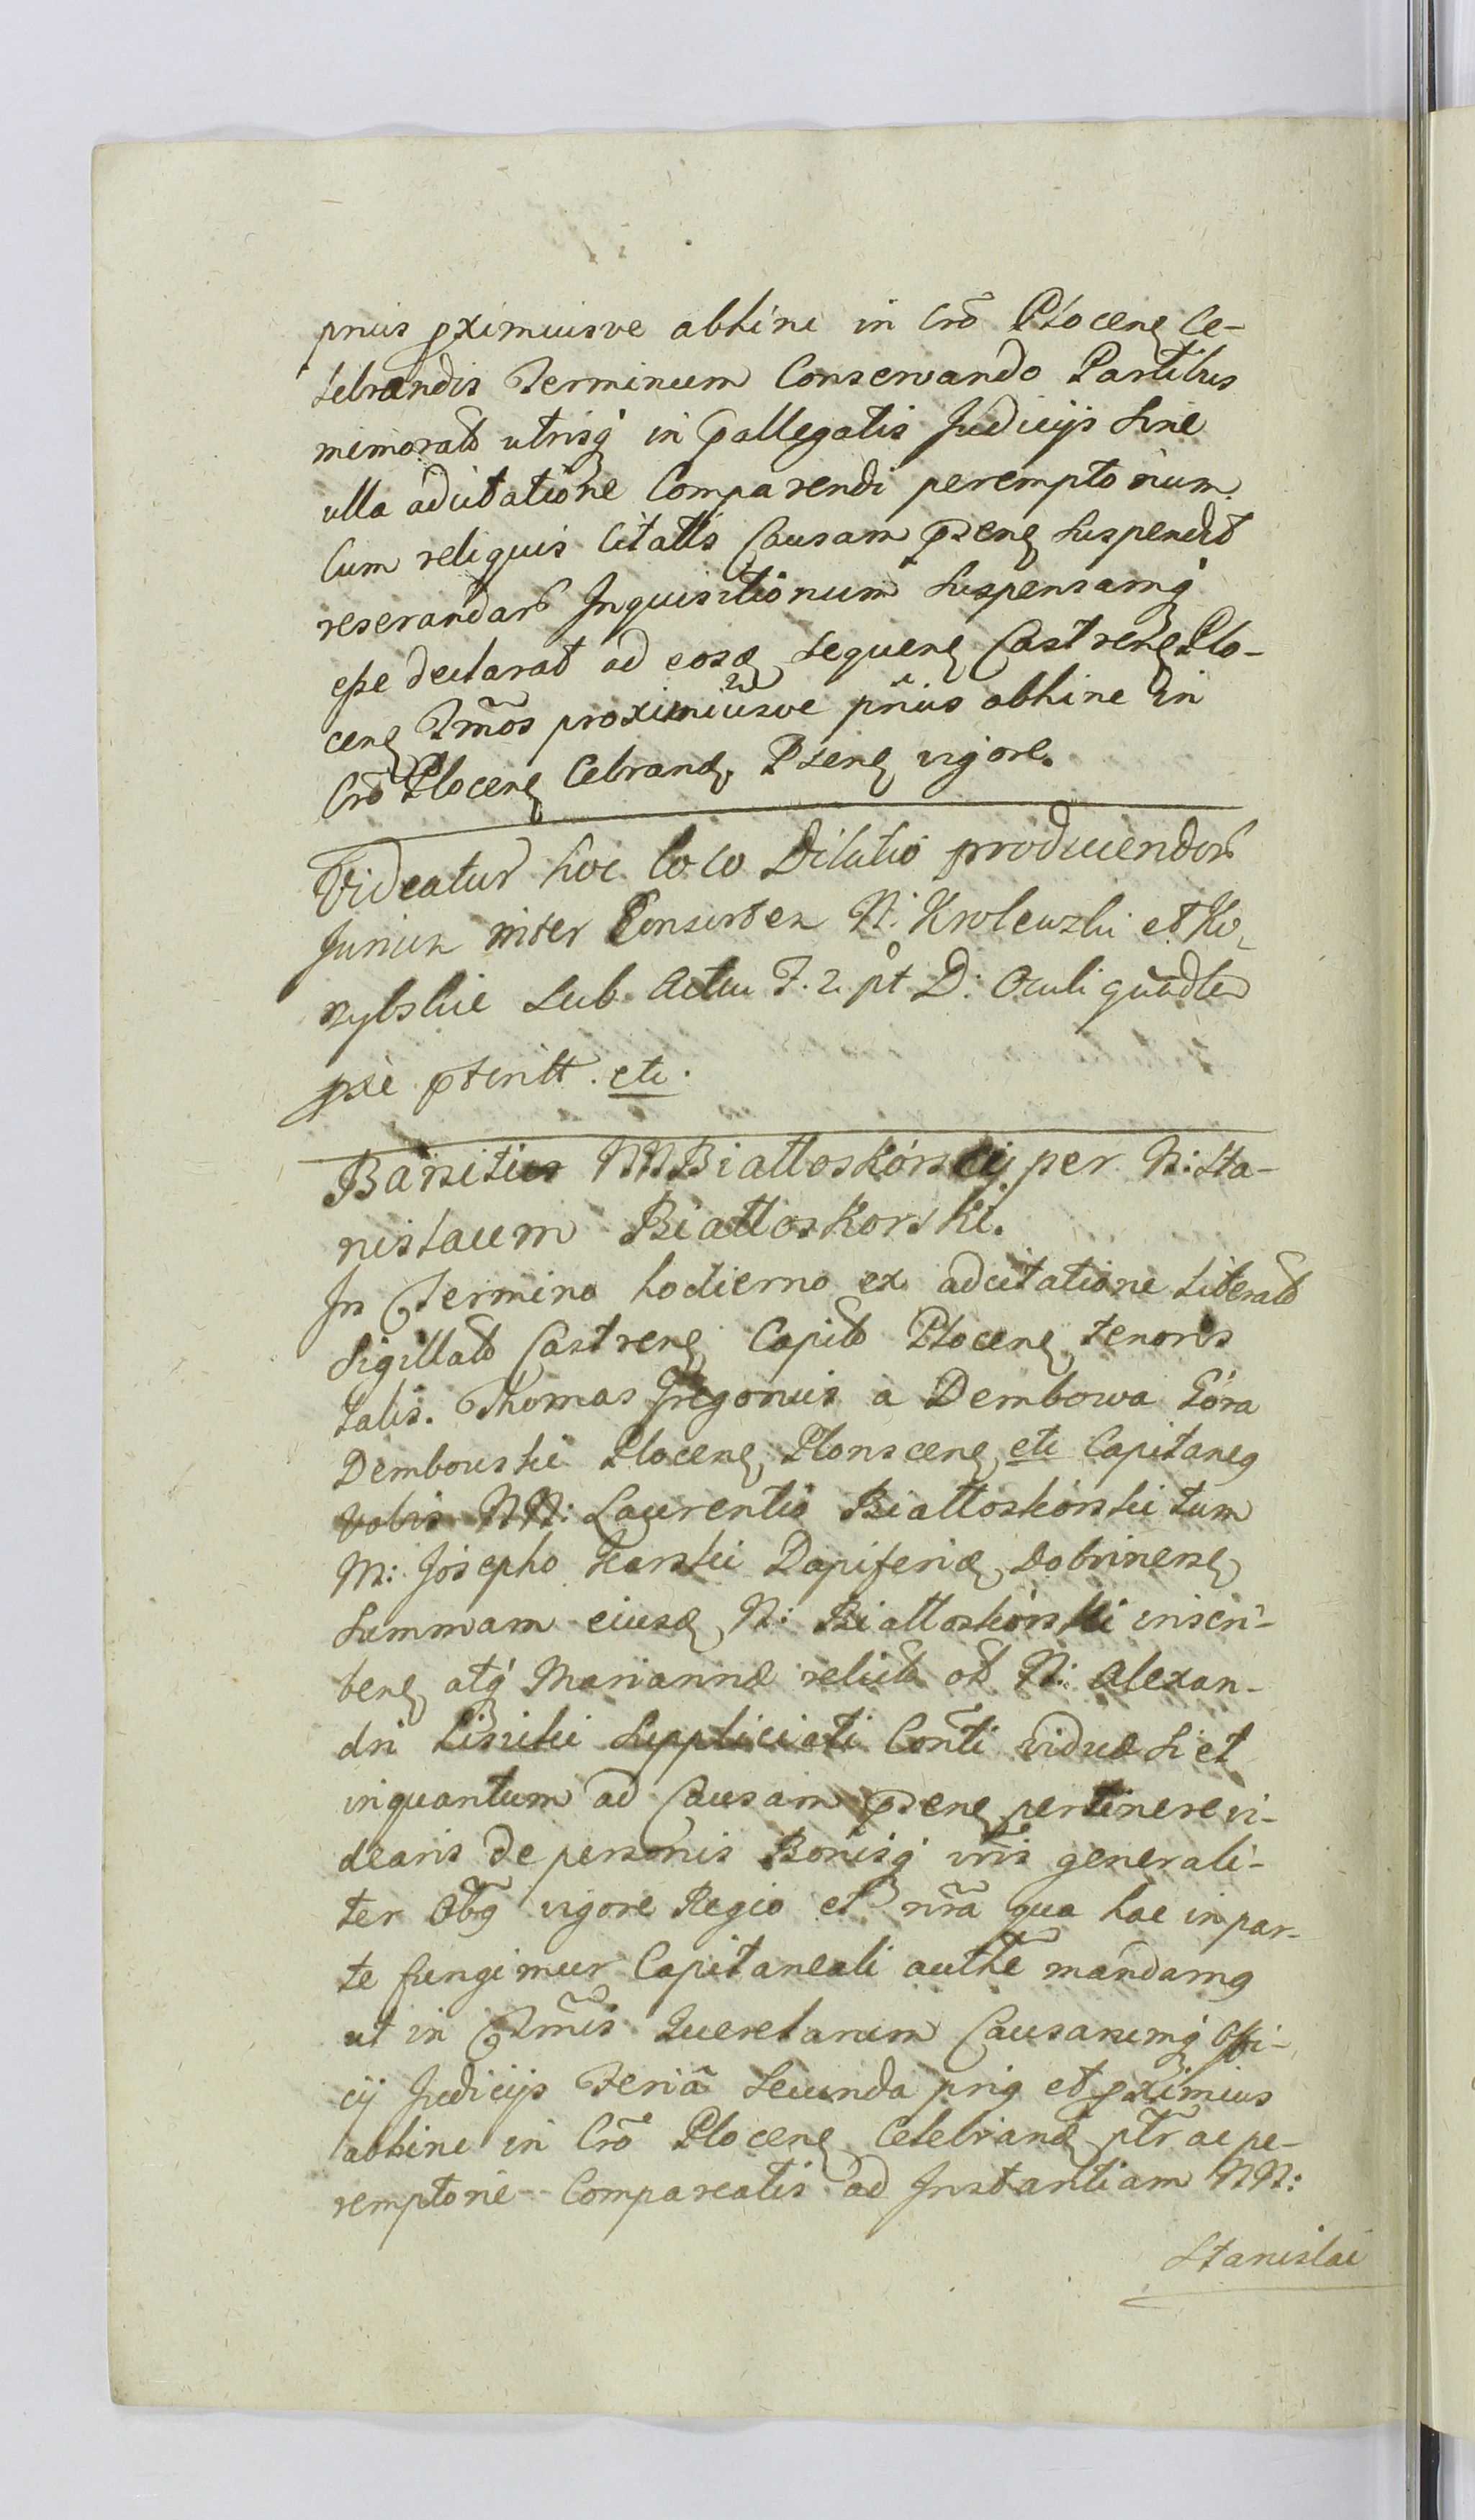 pnius pximiusve abhinc in Crõ Plocenę Ce-
lebrandis Terminum Conservando Partibus
memorat̃ utrisq́ in pallegatis Judicijs Sine
ulla adcitatione Comparendi peremptorium.
Cum reliquis Citatis Causam psenę Suspendit
reserandar̃ Inquisitionum Suspensamq́
esse declarat ad eosd́ Sequenę Castrenę Plo-
cenę Tm̃os proximiusve pñius abhinc in
Crõ Plocenę Celrand. Psenę vigore.
Videatur hoc loco Dilatio producendor̃
Jurium inter Consortes N: Krolewski et Ko,
zybskie Sub Actu F. 2 pt D: Oculi quadle
psie pteritt. etc.
Banitio NN Białłoskórscy per N: Sta-
nislaum Białłoskorski.
In Termino hodierno ex adcitatione Literar̃
Sigillat̃ Castrenę Capit̃ Plocenę tenoris
talis. Thomas Gregorius a Dembowa Góra
Dembowski Plocenę, Płonscenę, etc Capitaneq
Vobis NN: Laurentio Białłoskórski tum
M: Josepho Karski Dapiferid, Dobrinensę
Summam eiusd, N: Białłoskórski inscri-
benę atq́ Mariannæ relictæ ol N: Alexan-
dri Lisicki Suppliciati Conti viduæ Si et
inquantum ad Causam psenę pertinere vi-
dearis de personis Bonisq́ vr̃is generali-
ter Obq vigore Regio et nr̃a qua hac in par-
te fungimur Capitaneali autthe mandamq
ut in Tm̃is Querelarum Causarumq́ Offi-
cij Judicijs Feriâ Secunda priq et pximius
abhinc in Crõ Plocenę Celebrand ptr̃ ac pe-
remptorie Compareatis ad Instantiam NN:
Stanislai